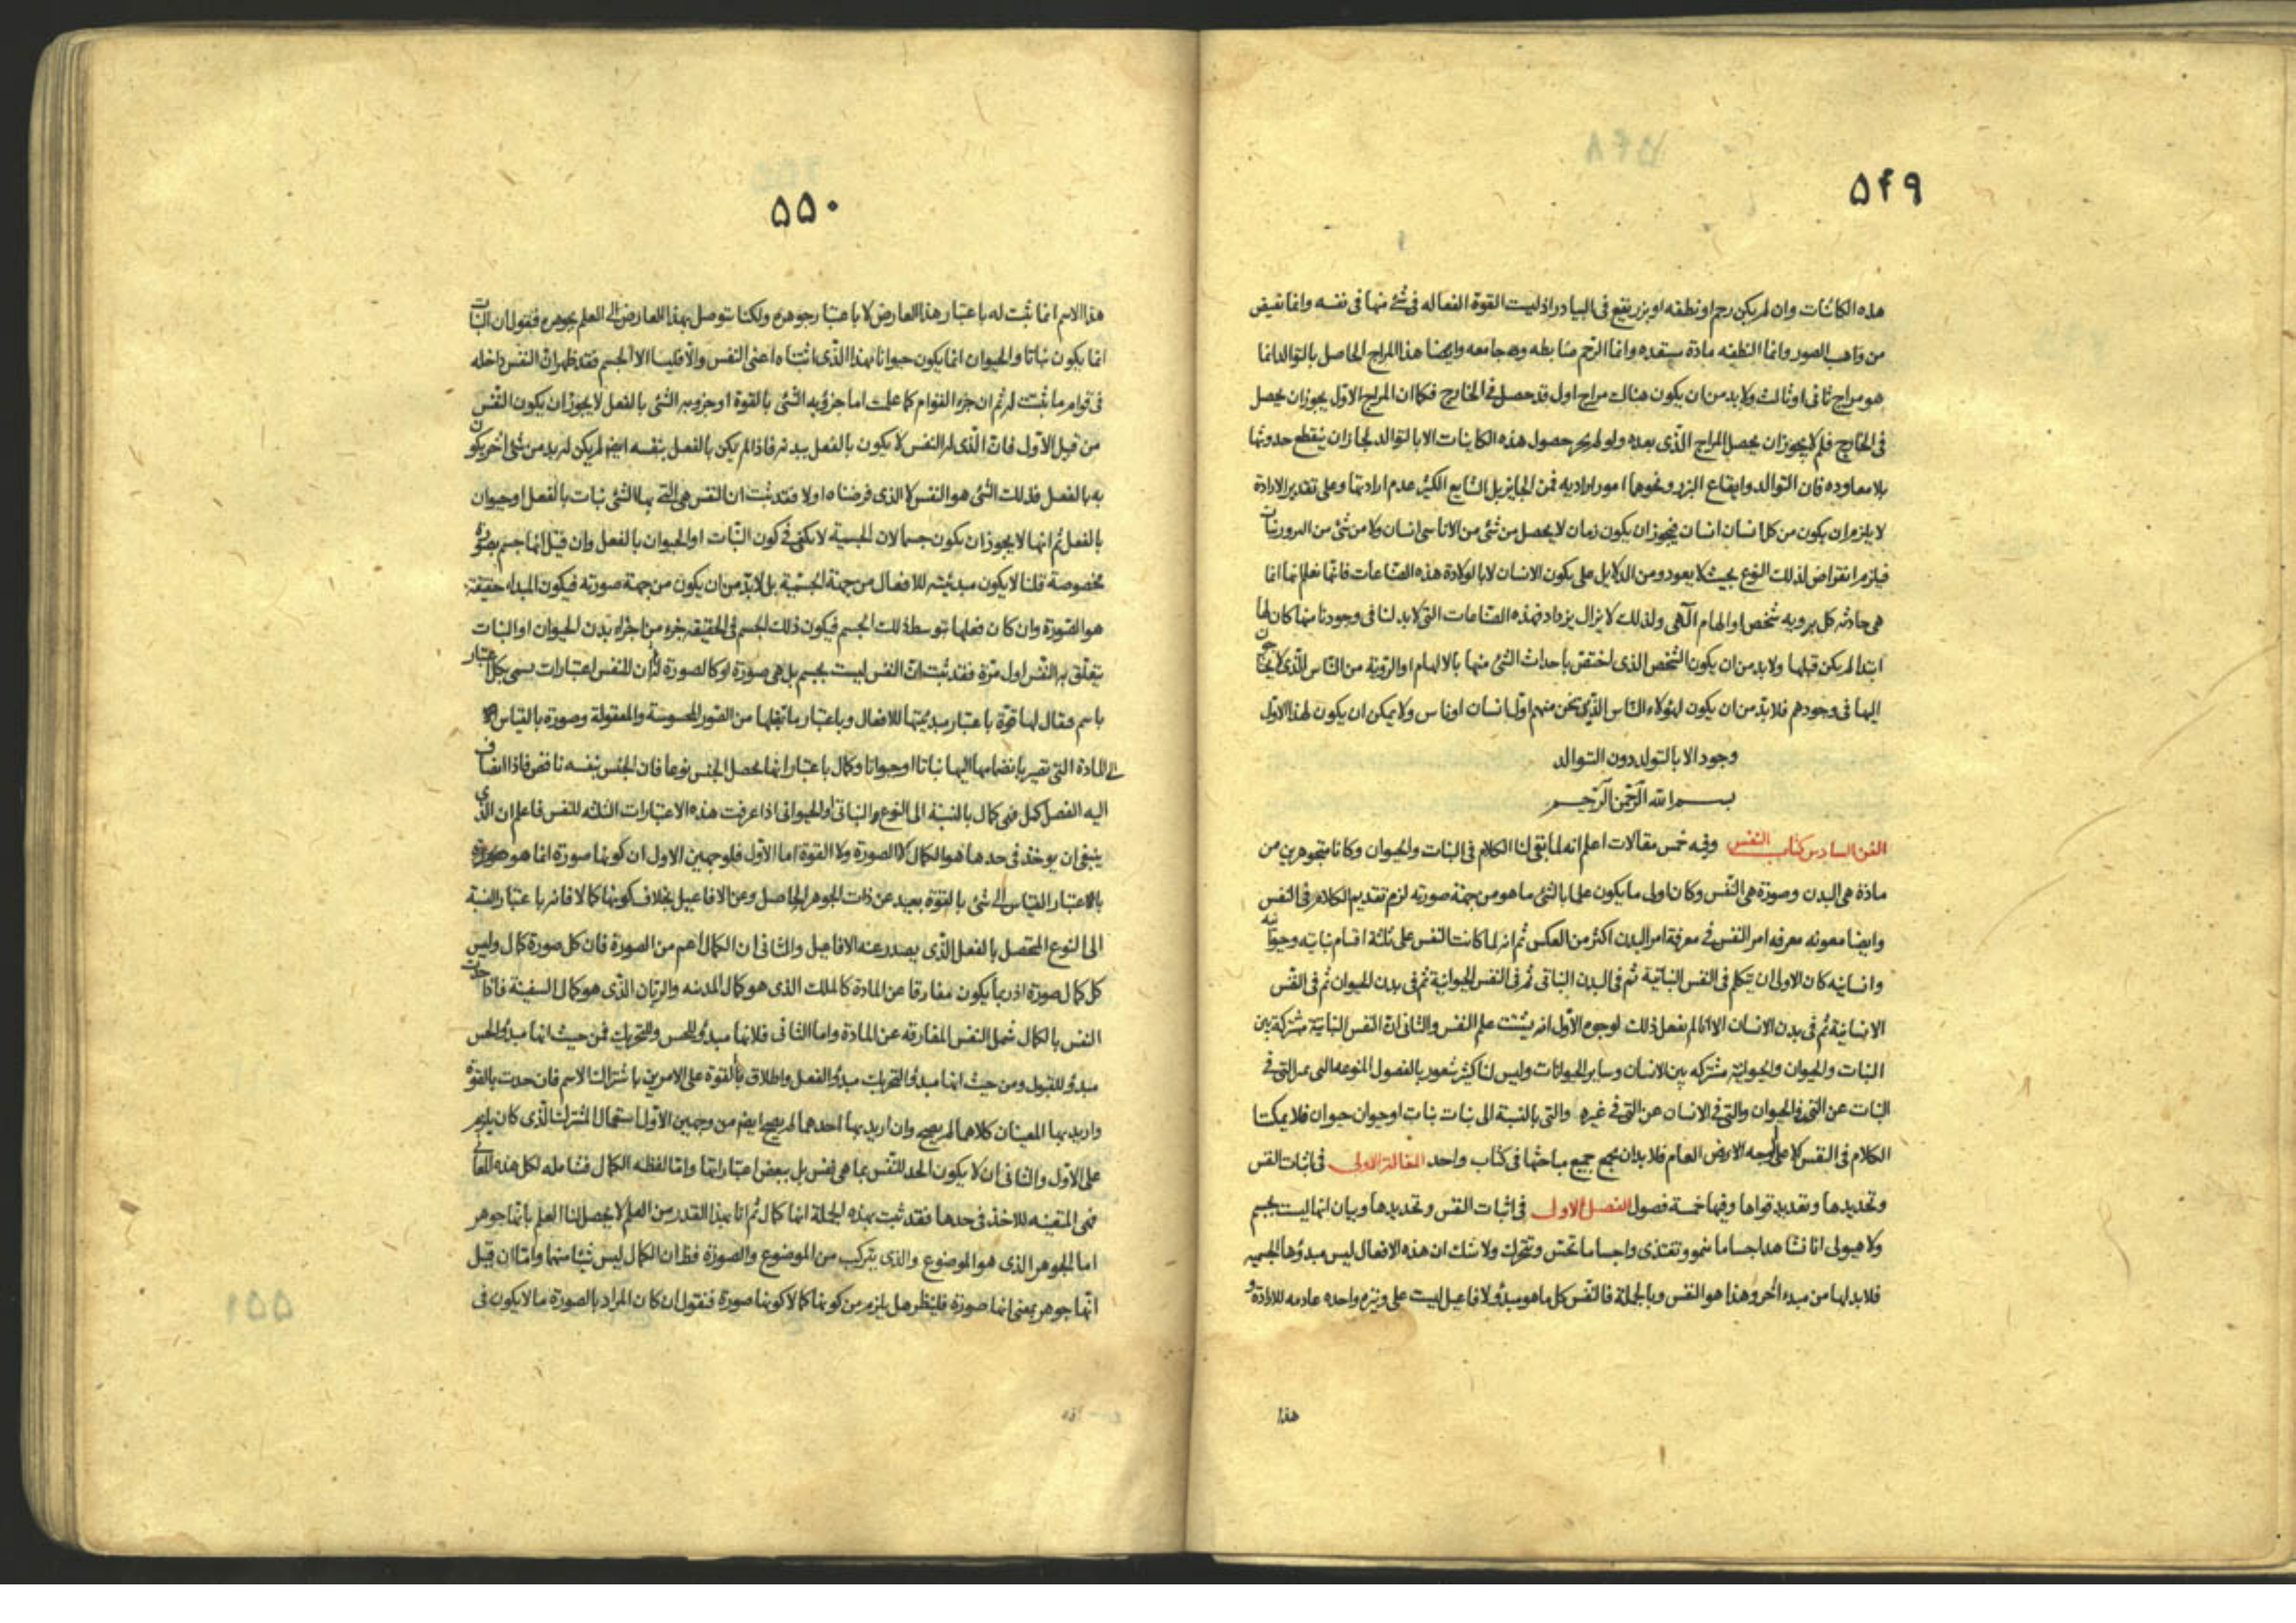 ۵۴۹
هذه الكائنات وان لم يكن رحم او نطفه او بزر يقع فى البيادر اذ ليست القوة الفعاله فى شئ منها فى نفسه وانما تفيض
من واهب الصور وانما النطفه مادة مستعده وانما الرحم ضابطه وجامعه وايضا هذا المزاج الحاصل بالتوالد انما
هو مزاج ثانى او ثالث ولا بد من ان يكون هناك مزاج اول قد حصل فى الخارج فكما ان المزاج الاول يجوز ان يحصل
فى الخارج فلم لا يجوز ان يحصل المزاج الذى بعده ولو لم يجز حصول هذه الكاينات الا بالتوالد لجاز ان ينقطع حدوثها
بلا معاوده فان التوالد وايقاع البزر ونحوها امور اراديه فمن الجايز بل الشايع الكثير عدم ارادتها وعلى تقدير الارادة
لا يلزم ان يكون من كل انسان انسان فيجوز ان يكون زمان لا يحصل من شئ من الاناسى انسان ولا من شئ من البزور نبات
فيلزم انقراض لذلك النوع بحيث لا يعود ومن الدلايل على تكون الانسان لا بالولادة هذه الصناعات فانما نعلم انها انما
هى حادثه كل برويه شخص او الهام آلهى ولذلك لا يزال يزداد فهذه الصناعات التى لا بد لنا فى وجودنا منها كان لها
ابتدا لم يكن قبلها ولا بد من ان يكون الشخص الذى اختص باحداث الشئ منها بالالهام او الروية من الناس الذى لا يحتاجون
اليها فى وجودهم فلا بد من ان يكون لهؤلاء الناس الذين نحن منهم اول انسان او ناس ولا يمكن ان يكون لهذا الاول
وجود الا بالتولد دون التوالد
بسم الله الرحمن الرحيم
الفن السادس كتاب النفس وفيه خمس مقالات اعلم انه لما بقى لنا الكلام فى النبات والحيوان وكانا متجوهرين من
مادة هى البدن وصورة هى النفس وكان اولى ما يكون علما بالشئ ما هو من جهة صورته لزم تقديم الكلام فى النفس
وايضا معونه معرفه امر النفس فى معرفة امر البدن اكثر من العكس ثم انه لما كانت النفس على ثلثة اقسام نباتيه وحيوانيه
وانسانيه كان الاولى ان يتكلم فى النفس النباتية ثم فى البدن النباتى ثم فى النفس الحيوانية ثم فى بدن الحيوان ثم فى النفس
الانسانية ثم فى بدن الانسان الا انا لم نفعل ذلك لوجوه الاول انه يشتت علم النفس والثانى ان النفس النباتية مشتركة بين
النبات والحيوان والحيوانية مشتركه بين الانسان وساير الحيوانات وليس لنا كثير شعور بالفصول المنوعه التى تميز التى فى
النبات عن التى فى الحيوان والتى فى الانسان عن التى فى غيره والتى بالنسبة الى نبات نبات او حيوان حيوان فلا يمكننا
الكلام فى النفس الا على الوجه الارض العام فلا بد ان نجمع جميع مباحثها فى كتاب واحد المقالة الاولى فى اثبات النفس
وتحديدها وتعديد قواها وفيها خمسة فصول الفصل الاول فى اثبات النفس وتحديدها وبيان انها ليست بجسم
ولا هيولى انا نشاهد اجساما تنمو وتغتذى واجساما تحس وتتحرك ولا شك ان هذه الافعال ليس مبدؤها الجسميه
فلا بد لها من مبدء اخر وهذا هو النفس وبالجملة فالنفس كل ما هو مبدؤ لافاعيل ليست على وتيرة واحده عادمه للارادة و
هذا
۵۵۰
هذا الاسم انما ثبت له باعتبار هذا العارض لا باعتبار جوهره ولكنا نتوصل بهذا العارض الى العلم بجوهره فنقول ان النبات
انما يكون نباتا والحيوان انما يكون حيوانا بهذا الذى اثبتناه اعنى النفس والا فليسا الا الجسم فقد ظهر ان النفس داخله
فى قوام ما ثبتت له ثم ان جزء القوام كما علمت اما جزؤ به الشئ بالقوة او جزو به الشئ بالفعل لا يجوز ان يكون النفس
من قبيل الاول فان الذى له النفس لا يكون بالفعل ببدنه فاذا لم يكن بالفعل بنفسه ايضا لم يكن له بد من شئ آخر يكون
به بالفعل فذلك الشئ هو النفس لا الذى فرضناه اولا فقد ثبت ان النفس هى التى بها الشئ نبات بالفعل او حيوان
بالفعل ثم انها لا يجوز ان يكون جسما لان الجسمية لا يكفى فى كون النبات او الحيوان بالفعل وان قيل انها جسم بصورة
مخصوصة قلنا لا يكون مبدئيته للافعال من جهة الجسمية بل لا بد من ان يكون من جهة صورته فيكون المبداء حقيقة
هو الصورة وان كان فعلها بتوسط ذلك الجسم فيكون ذلك الجسم فى الحقيقه جزء من اجزاء بدن الحيوان او النبات
يتعلق به النفس اول مرة فقد ثبت ان النفس ليست بجسم بل هى صورة او كالصورة ثم ان للنفس اعتبارات يسمى بكل اعتبار
باسم فيقال لها قوة باعتبار مبدئيتها للافعال وباعتبار ما تقبلها من الصور المحسوسة والمعقولة وصورة بالقياس
الى المادة التى تصير بانضمامها اليها نباتا او حيوانا وكمال باعتبار انها يحصل الجنس نوعا فان الجنس بنفسه ناقص فاذا انضاف
اليه الفصل كمل فهى كمال بالنسبة الى النوع والنباتى او الحيوانى اذا عرفت هذه الاعتبارات الثلثه للنفس فاعلم ان الذى
ينبغى ان يوخذ فى حدها هو الكمال لا الصورة ولا القوة اما الاول فلوجهين الاول ان كونها صورة انما هو
بالاعتبار القياس الى شئ بالقوة بعيد عن ذات الجوهر الحاصل وعن الافاعيل بخلاف كونها كمالا فانه باعتبار النسبة
الى النوع المحصل بالفعل الذى يصدر عنه الافاعيل والثانى ان الكمال اعم من الصورة فان كل صورة كمال وليس
كل كمال صورة اذ ربما يكون مفارقا عن المادة كالملك الذى هو كمال المدينه والربان الذى هو كمال السفينة فاذا حدت
النفس بالكمال شمل النفس المفارقه عن المادة واما الثانى فلانها مبدؤ للحس والتحريك فمن حيث انها مبدؤ الحس
مبدؤ للقبول ومن حيث انها مبدؤ التحريك مبدؤ الفعل واطلاق القوة على الامرين باشتراك الاسم فان حدت بالقوة
واريد بها المعنيان كلاهما لم يصح وان اريد بها احدهما لم يصح ايضا من وجهين الاول استعمال المشترك الذى كان يلزم
على الاول والثانى ان لا يكون الحد للنفس بما هى نفس بل ببعض اعتباراتها واما لفظه الكمال فشامله لكل هذه المعانى
فهى المتعينه للاخذ فى حدها فقد ثبت بهذه الجملة انها كمال ثم انا بهذا القدر من العلم لا يحصل لنا العلم بانها جوهر
اما الجوهر الذى هو الموضوع والذى يتركب من الموضوع والصورة فظ ان الكمال ليس شيئا منها واما ان قيل
انها جوهر بمعنى انها صورة فلينظر هل يلزم من كونها كمالا كونها صورة فنقول ان كان المراد بالصورة ما لا يكون فى